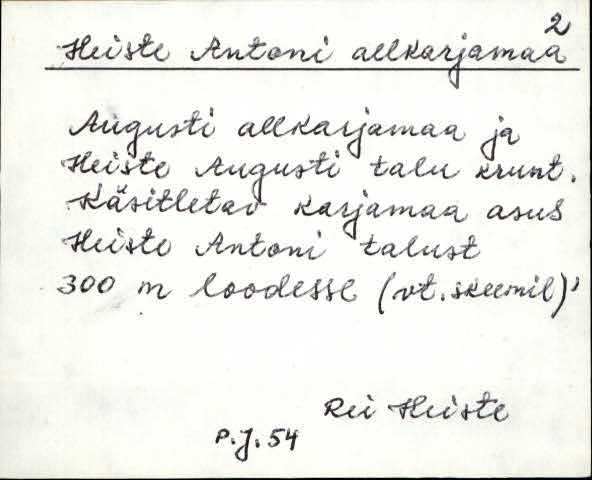 2
Heiste Antoni allkarjamaa
Augusti allkarjamaa ja
Heiste Augusti talu krunt.
Käsitletav karjamaa asus
Heiste Antoni talust
300 m loodesse (vt. skeemil)'
Rei Heiste
P.J. 54